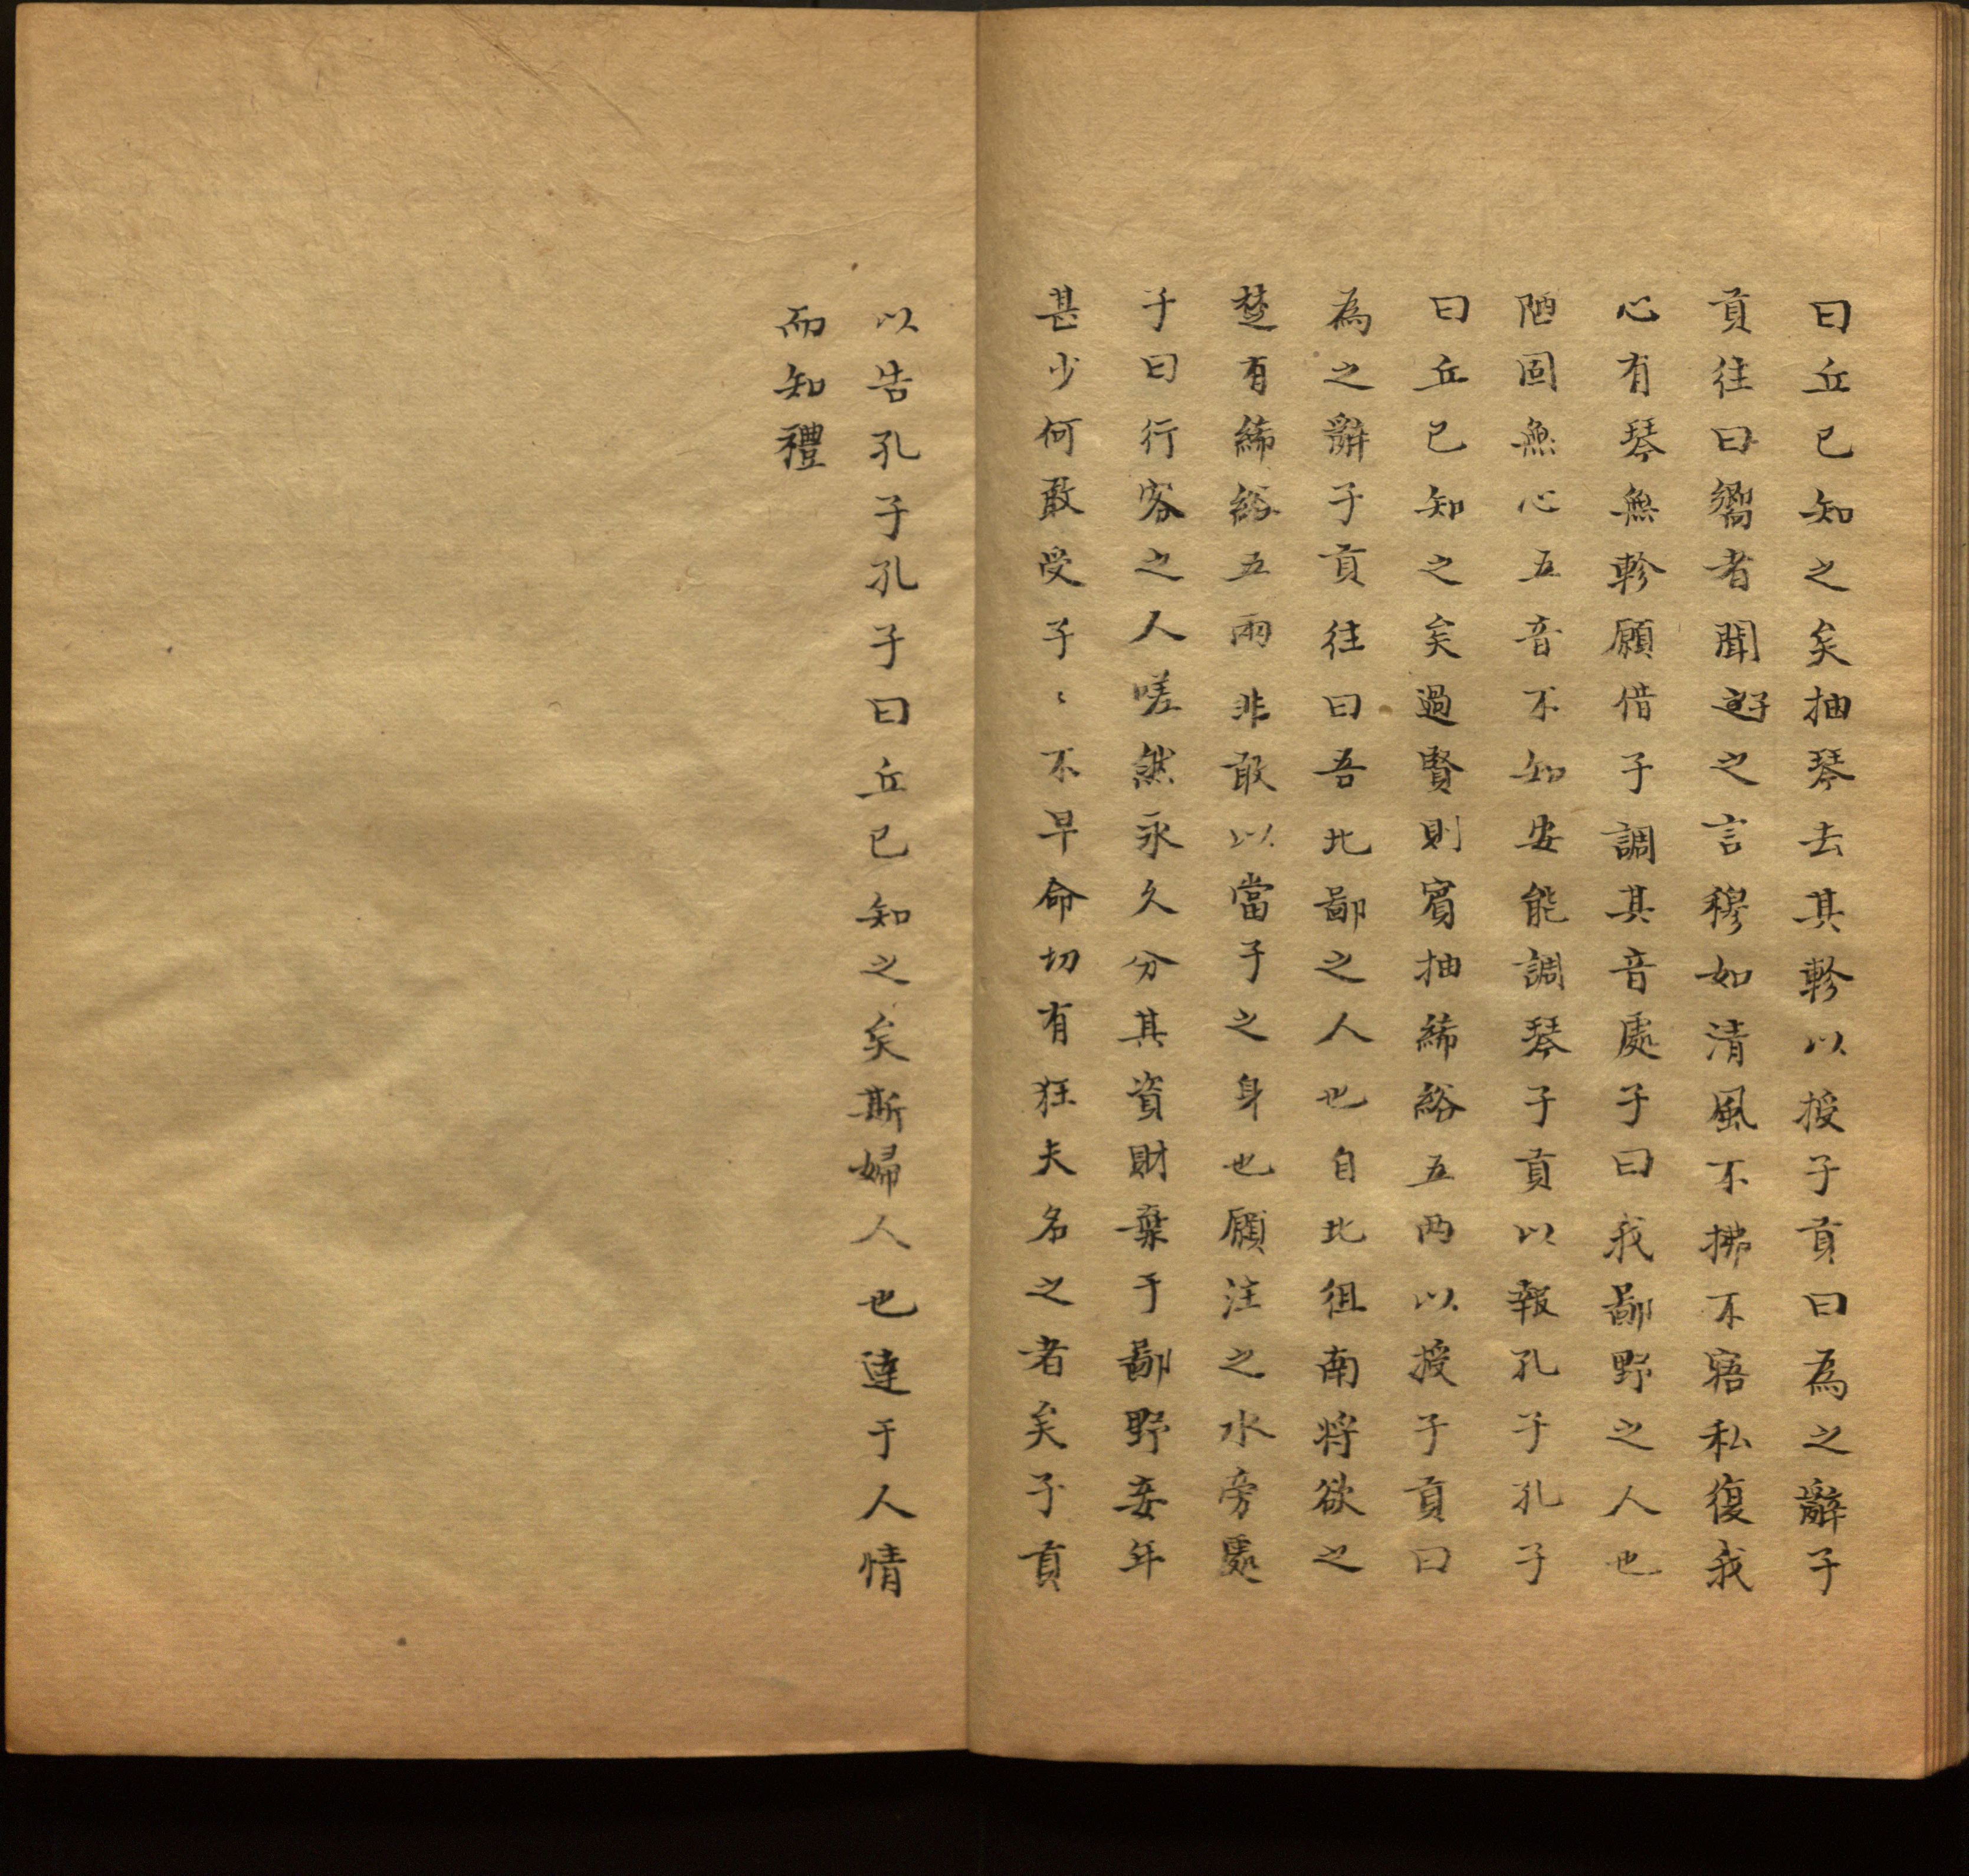 曰丘已知之矣抽琴去其軫以授子貢曰為之辭子
貢往曰嚮者聞子之言穆如清風不拂不寤私復我
心有琴無軫願借子調其音處子曰我鄙野之人也
陋固無心五音不知安能調琴子貢以報孔子孔子
曰丘已知之矣過賢則賓抽絺綌五両以授子貢曰
為之辭子貢往曰吾北鄙之人也自北徂南將欲之
楚有絺綌五兩非敢以當子之身也願注之水旁處
子曰行客之人嗟然永久分其資財棄于鄙野妾年
甚少何敢受子〻不早命切有狂夫名之者矣子貢
以告孔子孔子曰丘已知之矣斯婦人也達于人情
而知禮